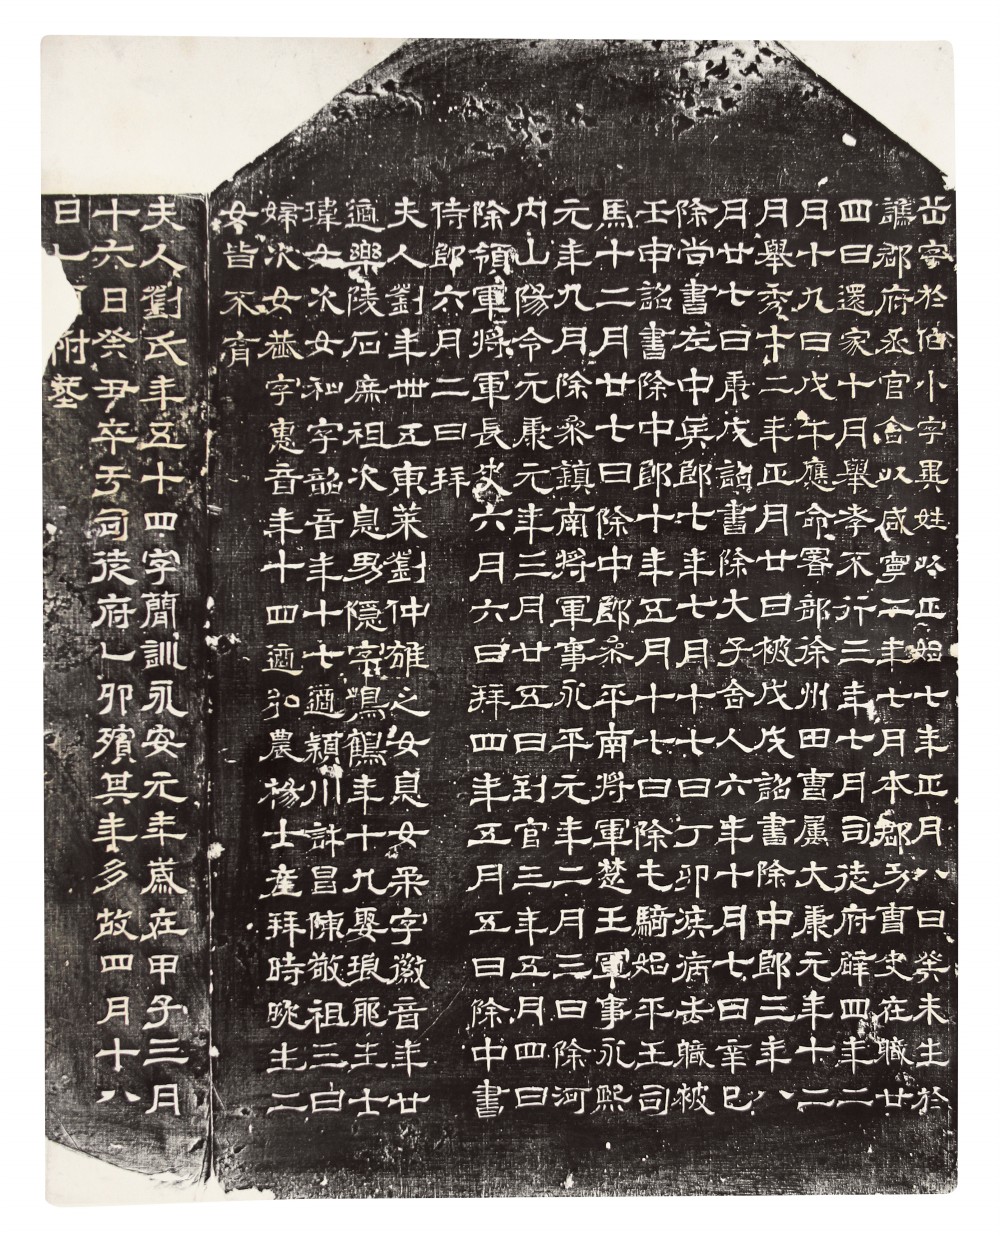 岳字於伯小字異姓以正始七年正月八日癸未生於
譙郡府丞官舍以咸寧二年七月本郡功曹史在職廿
四日還家十月舉孝不行三年七月司徒府辟四年二
月十九日戊午應命署部徐州田曹屬大康元年十二
月舉秀才二年正月廿日被戊戌詔書除中郎三年八
月廿七日庚戌詔書除大子舍人六年十月七日辛巳
除尚書左中兵郎七年七月十七日丁卯疾病去職被
壬申詔書除中郎十年五月十七日除屯騎始平王司
馬十二月廿七日除中郎參平南將軍楚王軍事永熙
元年九月除參鎮南將軍事永平元年二月三日除河
內山陽令元康元年三月廿五日到官三年五月四日
除領軍將軍長史六月六日拜四年五月五日除中書
侍郎六月二日拜
夫人劉年卌五東萊劉仲雄之女息女柔字徽音年廿
適樂陵石庶祖次息男隱字鳴鶴年十九娶琅耶王士
瑋女次女和字韶音年十七適潁川許昌陳敬祖三日
婦次女恭字惠音年十四適弘農楊士產拜時晚生二
女皆不育
夫人劉氏年五十四字簡訓永安元年歲在甲子三月
十六日癸丑卒于司徒府乙卯殯其年多故四月十八
日乙酉附塟